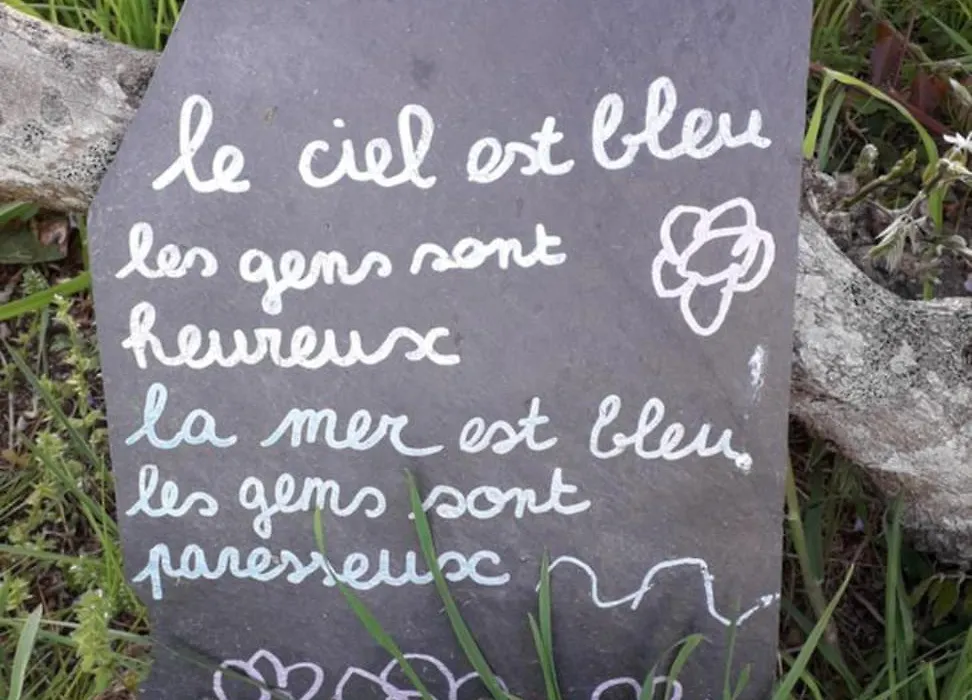 le ciel est bleu
les gens sont
heureux
la mer est bleu
les gens sont
paresseux